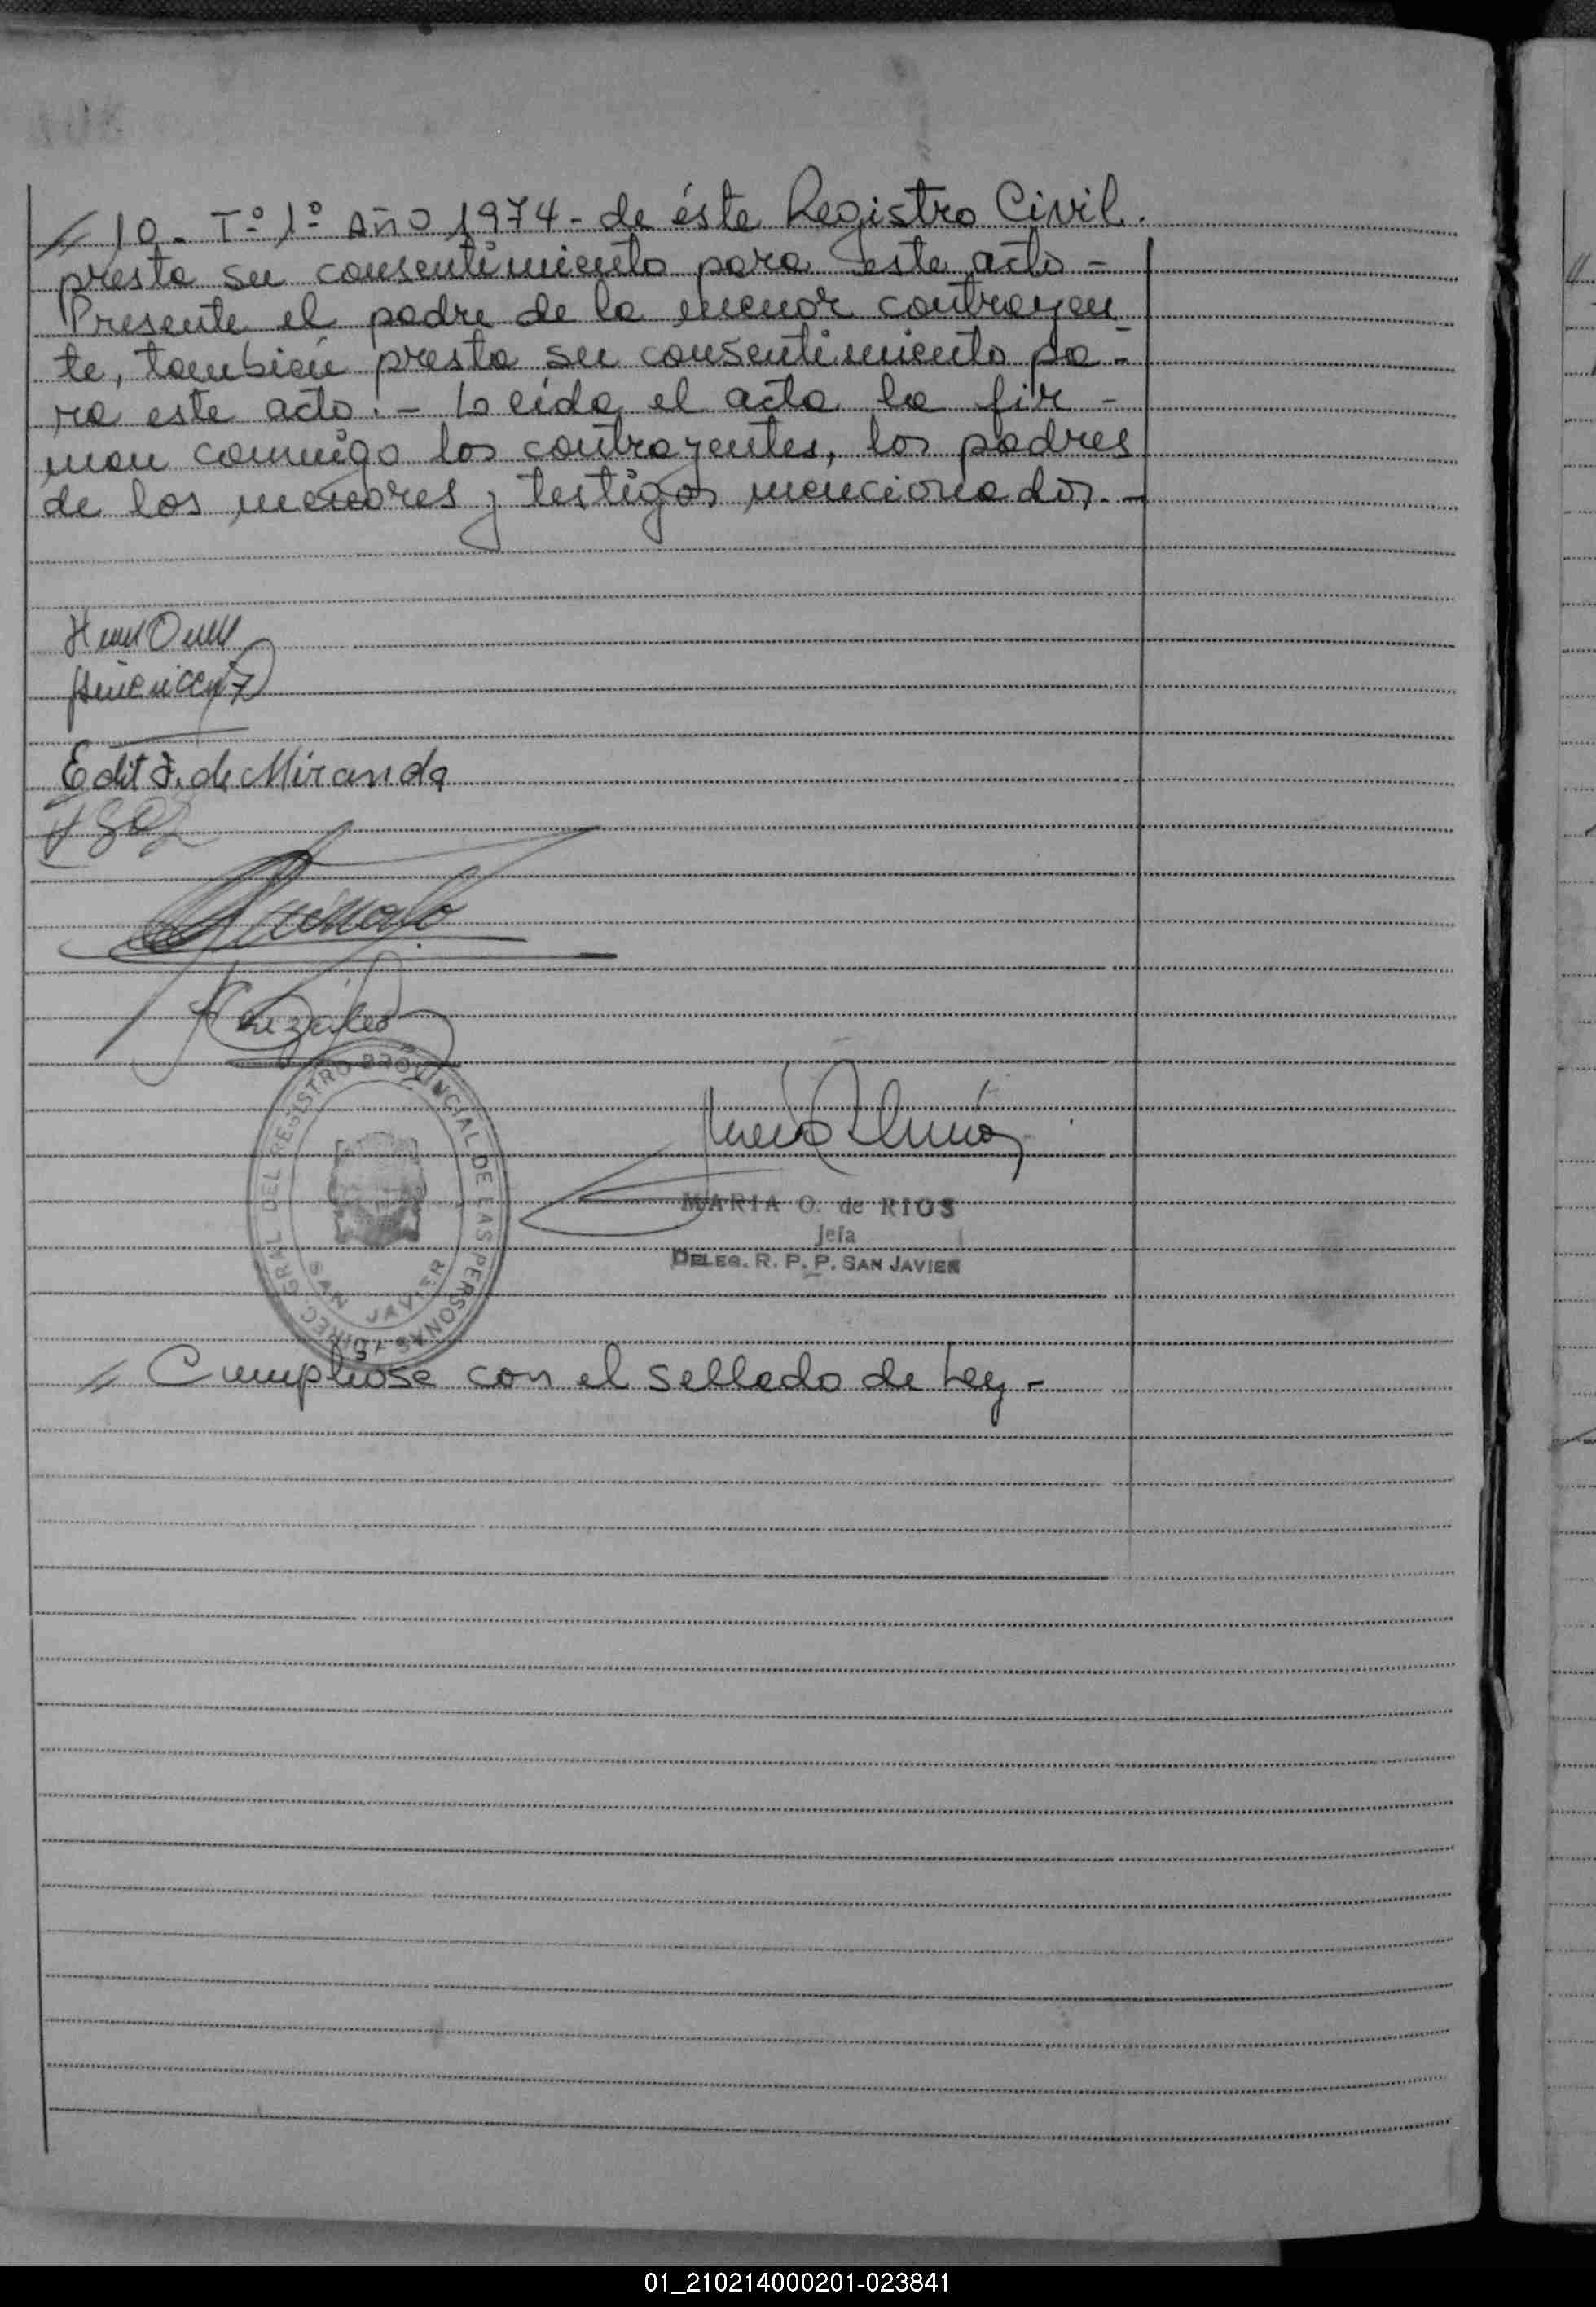 // 10. T° 1° Año 1974 - de éste Registro Civil.
presta su consentimiento para este acto -
Presente el padre de la menor contrayen
te, también presta su consentimiento pa-
ra este acto. - Leída el acta la fir -
man conmigo los contrayentes, los padres
de los menores y testigos mencionados. -
Edit de Miranda
DIREC. GRAL. DEL REGISTRO PROVINCIAL DE LAS PERSONAS
SAN JAVIER
MARIA O. de RIOS
Jefa
DELEG. R. P. P. SAN JAVIER
// Cumplióse con el sellado de Ley -
01_210214000201-023841